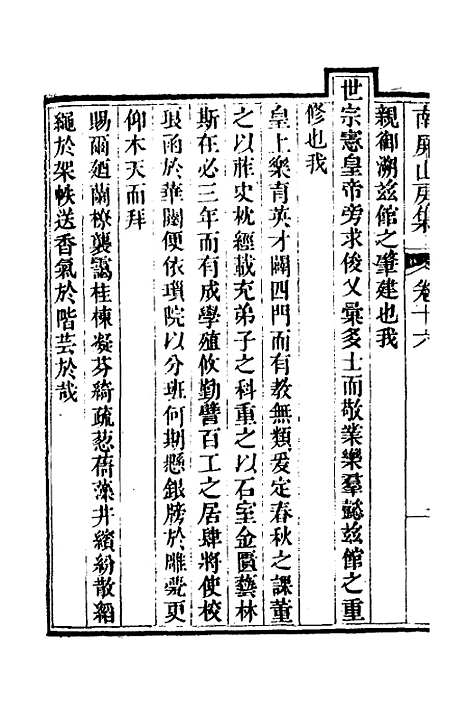 南屏山房集 卷十六
親御溯茲館之肇建也我
世宗憲皇帝旁求俊乂彙多士而敬業樂羣懿茲館之重
修也我
皇上樂育英才闢四門而有教無類爰定春秋之課董
之以祚史枕經載充弟子之科重之以石室金匱藝林
斯在必三年而有成學殖攸勤譬百工之居肆將使校
琅函於華閣便依瑣院以分班何期懸銀牓於雕甍更
仰木天而拜
賜爾廼蘭橑襲靄桂棟凝芬綺疏蔥蒨藻井繽紛散緗
縕於架帙送香氣於階芸於哉